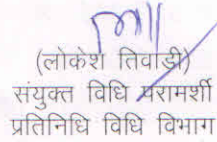 (लोकेश तिवाडी)
संयुक्त विधि परामर्शी
प्रतिनिधि विधि विभाग